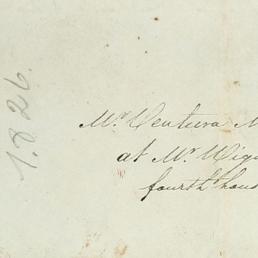 1826.
Mr Ventura M
at Mr Migu
fourth hous